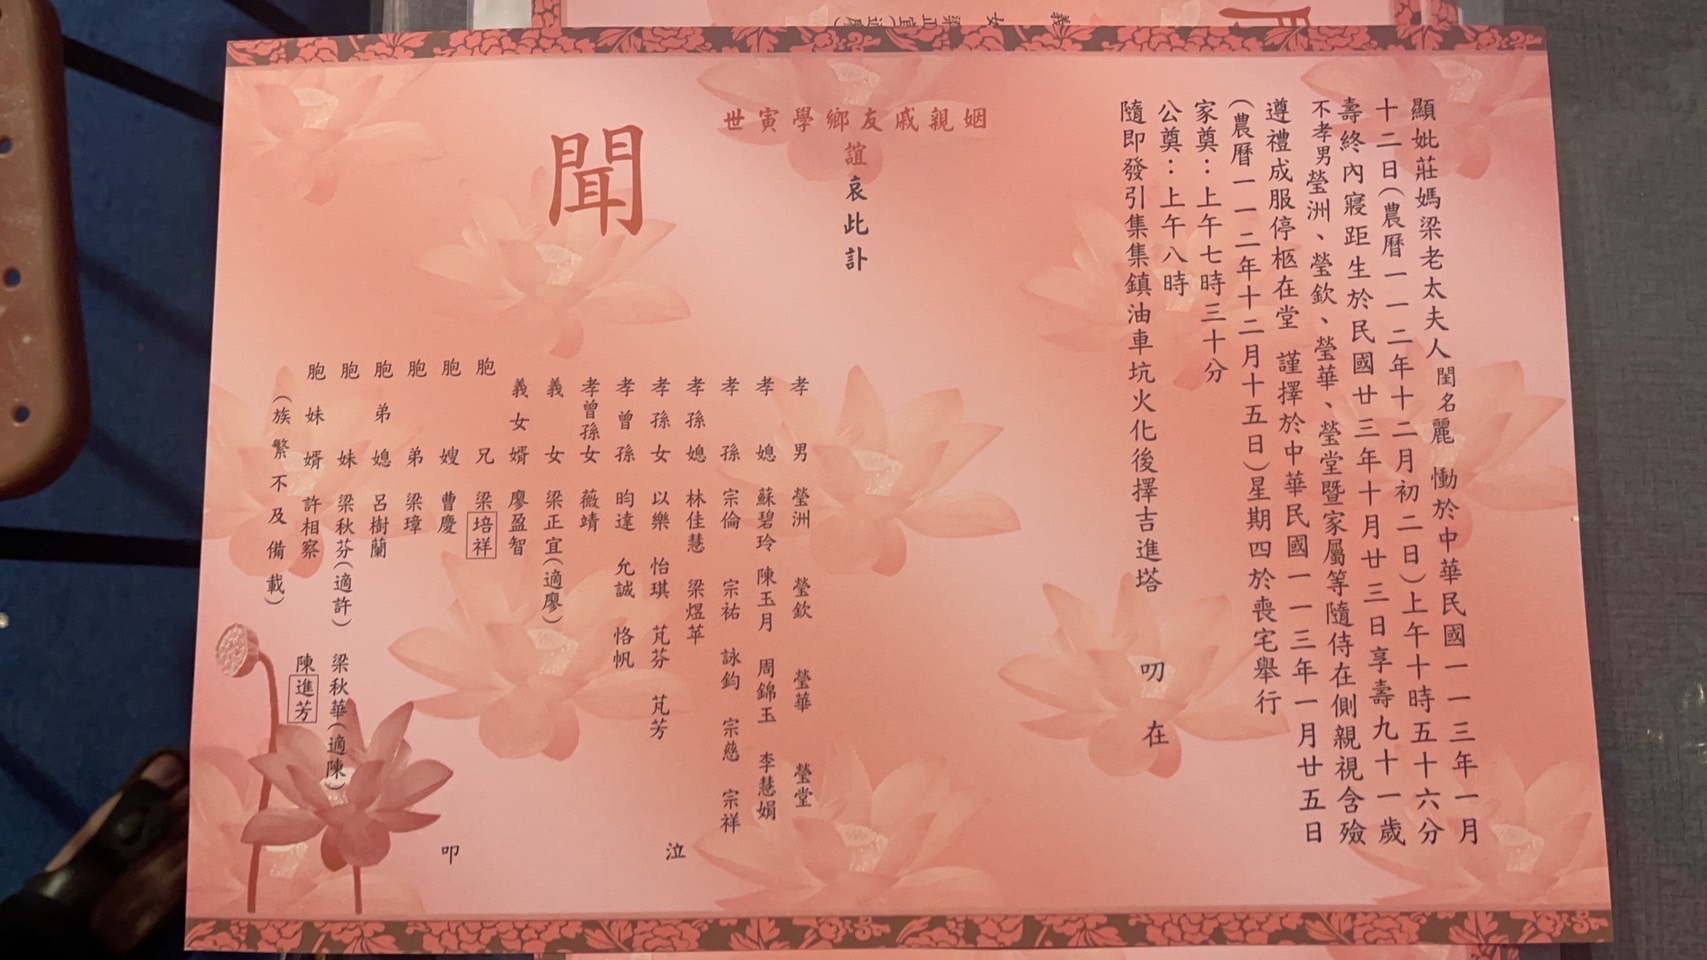 顯妣莊媽梁老太夫人閨名麗 慟於中華民國一一三年一月
十二日(農曆一一二年十二月初二日)上午十時五十六分
壽終內寢距生於民國廿三年十月廿三日享壽九十一歲
不孝男瑩洲、瑩欽、瑩華、瑩堂暨家屬等隨侍在側親視含殮
遵禮成服停柩在堂 謹擇於中華民國一一三年一月廿五日
(農曆一一二年十二月十五日)星期四於喪宅舉行
家奠:上午七時三十分
公奠:上午八時
隨即發引集集鎮油車坑火化後擇吉進塔 叨 在
姻親戚友鄉學寅世
誼哀此訃
聞
孝男 瑩洲 瑩欽 瑩華 瑩堂
孝媳 蘇碧玲 陳玉月 周錦玉 李慧娟
孝孫 宗倫 宗祐 詠鈞 宗慈 宗祥
孝孫媳 林佳慧 梁煜苹
孝孫女 以樂 怡琪 芃芬 芃芳
孝曾孫 昀達 允誠 恪帆
孝曾孫女 薇靖
義女 梁正宜(適廖)
義女婿 廖盈智
胞兄 梁培祥
胞嫂 曹慶
胞弟 梁璋
胞弟媳 呂樹蘭
胞妹 梁秋芬(適許) 梁秋華(適陳)
胞妹婿 許相察 陳進芳
(族繁不及備載)
泣
叩